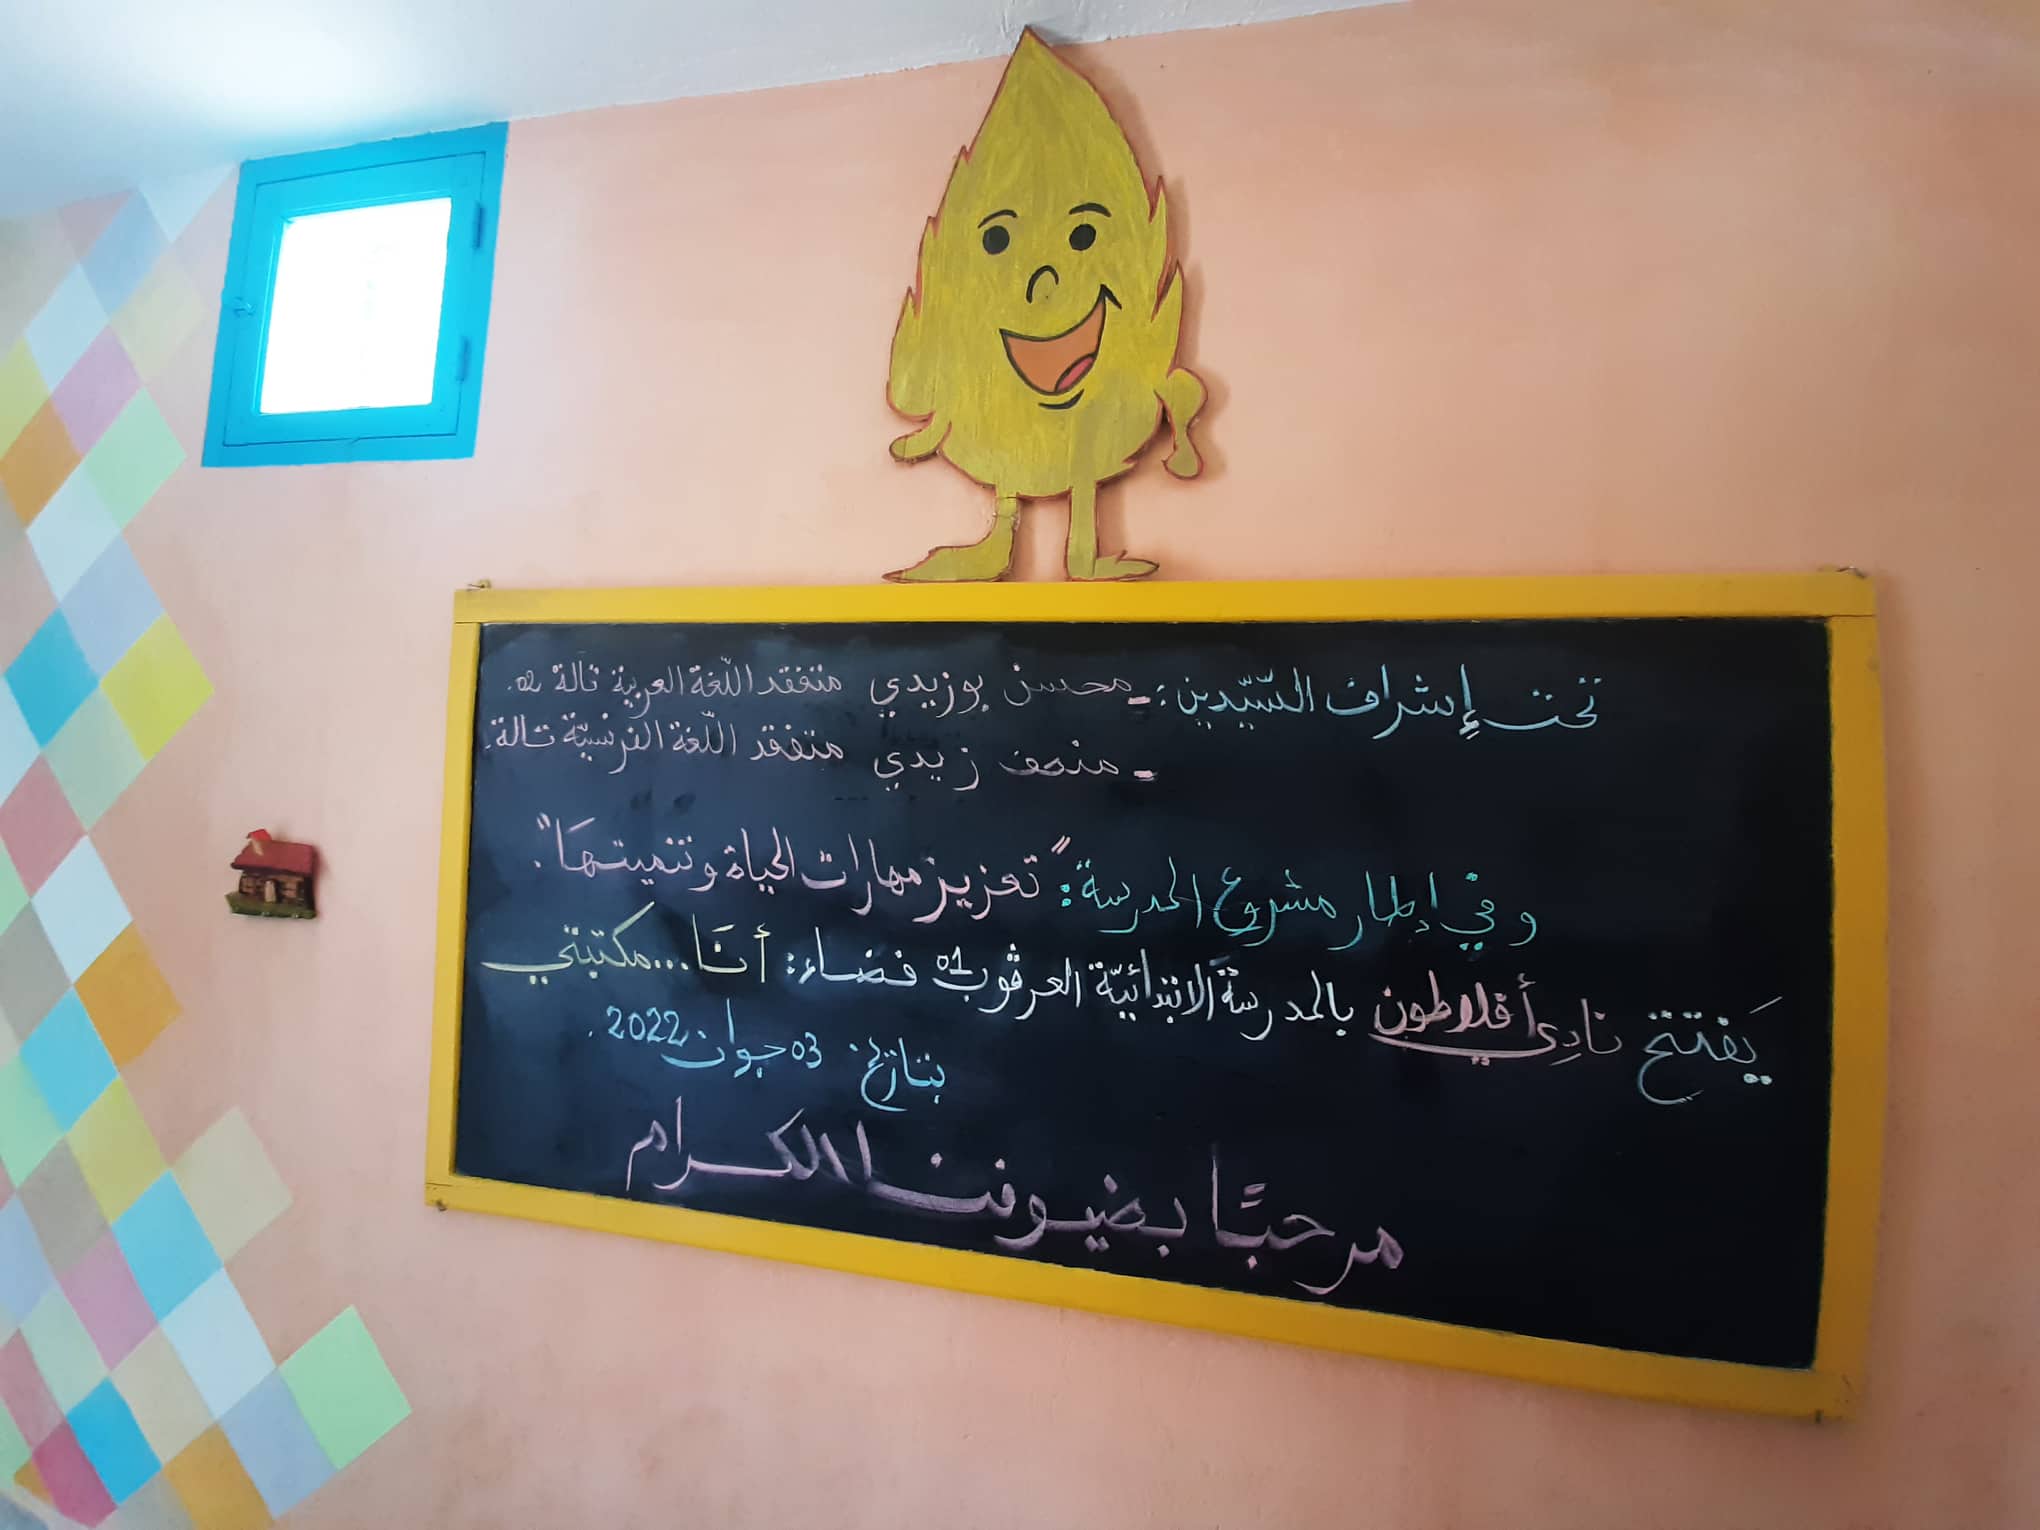 تحت إشراف السّيّدين: - محسن بوزيدي متفقد اللّغة العربية تالة 02.
- منصف زيدي متفقد اللّغة الفرنسيّة تالة.
و في إطار مشروع المدرسة: "تعزيز مهارات الحياة و تنميتهَا".
يَفتتح نادِي أفلاطون بالمدرسَة الابتدائيّة العرڤوب 01 فضاء: أنَا...مكتبتي
بتاريخ 03 جوان 2022.
مرحبًا بضيوفنا الكرام